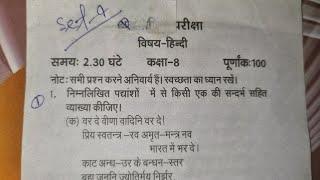 Set-A
परीक्षा
विषय-हिन्दी
समयः 2.30 घंटे कक्षा-8 पूर्णांकः100
नोटः सभी प्रश्न करने अनिवार्य हैं। स्वच्छता का ध्यान रखें।
1. निम्नलिखित पद्यांशों में से किसी एक की सन्दर्भ सहित
व्याख्या कीजिए।
(क) वर दे वीणा वादिनि वर दे।
प्रिय स्वतन्त्र -रव अमृत-मन्त्र नव
भारत में भर दे।
काट अन्ध-उर के बन्धन-स्तर
बहा जननि ज्योतिर्मय निर्झर